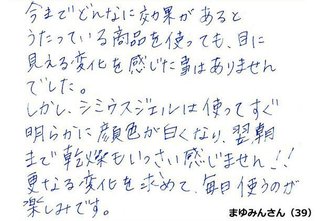 今までどんなに効果があると
うたっている商品を使っても、目に
見える変化を感じた事はありません
でした。
しかし、シミウスジェルは使ってすぐ
明らかに顔色が白くなり、翌朝
まで乾燥もいっさい感じません!!
更なる変化を求めて、毎日使うのが
楽しみです。
まゆみんさん（39）